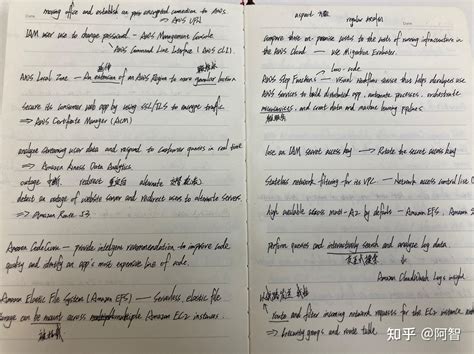 moving office and establish an encrypted connection to AWS
⇒ AWS VPN
IAM user use to change password - AWS Management Console
AWS Command Line Interface (AWS CLI).
AWS Local Zone - An extension of an AWS Region to more granular location
secure its consumer web app by using SSL/TLS to encrypt traffic
⇒ AWS Certificate Manager (ACM)
analyze streaming user data and respond to customer queries in real time
⇒ Amazon Kinesis Data Analytics.
outage 中断 redirect 重定向 alternate
detect an outage of website server and redirect users to alternate servers.
⇒ Amazon Route 53
Amazon CodeGuru - provide intelligent recommendation to improve code
quality and identify an app's most expensive line of code.
Amazon Elastic File System (Amazon EFS) — Serverless, elastic file
storage can be mount across multiple Amazon EC2 instances.
Date
compare their on-premise costs to the costs of running infrastructure
in the AWS Cloud — use Migration Evaluator
low-code
AWS Step Functions - visual workflow service that helps developers use
AWS services to build distributed app, automate processes, orchestrate
microservices, and create data and machine learning pipelines
lose an IAM secret access key — Rotate the secret access key
Stateless network filtering for its VPC — Network access control list
high available across multi-AZ by default - Amazon EFS, Amazon
perform queries and interactively search and analyze log data.
Amazon CloudWatch Logs Insight
route and filter incoming network requests for the EC2 instance
⇒ Security groups and route table
知乎 @阿智